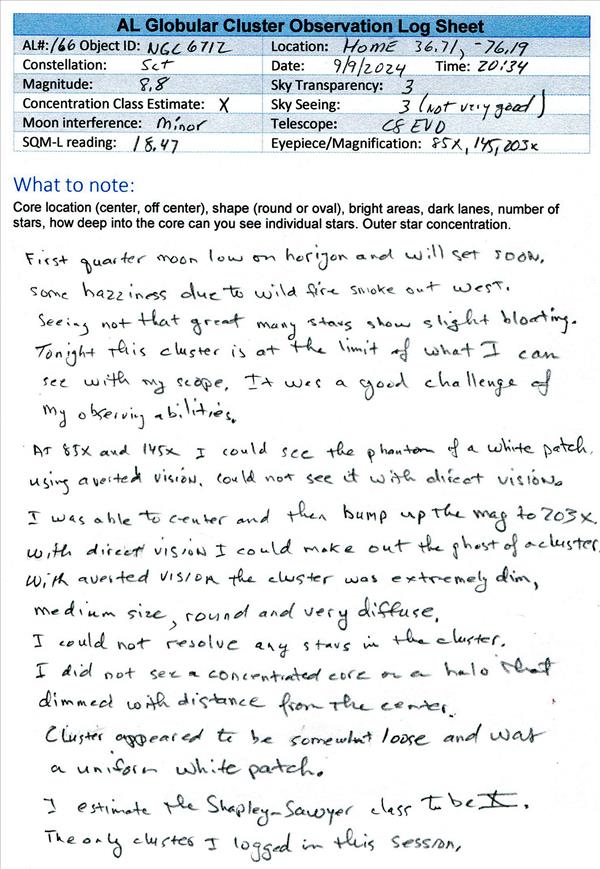 AL Globular Cluster Observation Log Sheet
AL#: 166 Object ID: NGC 6712 Location: Home 36.71, -76.19
Constellation: Sct Date: 9/9/2024 Time: 20:34
Magnitude: 8.8 Sky Transparency: 3
Concentration Class Estimate: X Sky Seeing: 3 (not very good)
Moon interference: minor Telescope: C8 EVO
SQM-L reading: 18.47 Eyepiece/Magnification: 85x, 145, 203x
What to note:
Core location (center, off center), shape (round or oval), bright areas, dark lanes, number of
stars, how deep into the core can you see individual stars. Outer star concentration.
First quarter moon low on horizon and will set soon.
some hazziness due to wild fire smoke out west.
Seeing not that great many stars show slight bloating.
Tonight this cluster is at the limit of what I can
see with my scope. It was a good challenge of
my observing abilities.
At 85x and 145x I could see the phantom of a white patch.
using averted vision. could not see it with direct vision.
I was able to center and then bump up the mag to 203x.
with direct vision I could make out the ghost of a cluster
With averted vision the cluster was extremely dim,
medium size, round and very diffuse.
I could not resolve any stars in the cluster.
I did not see a concentrated core or a halo that
dimmed with distance from the center.
Cluster appeared to be somewhat loose and was
a uniform white patch.
I estimate the Shapley-Sawyer class to be X.
The only cluster I logged in this session.